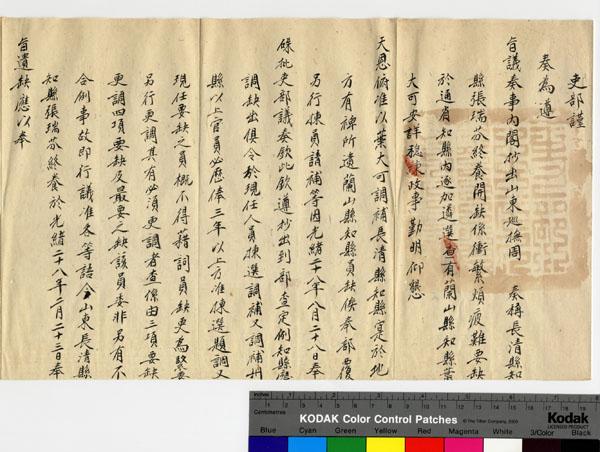 吏部謹
奏為遵
旨議奏事內閣抄出山東巡撫周 奏稱長清縣知
縣張瑞芬終養開缺係衝繁煩疲難要缺
於通省知縣內逐加遴選查有蘭山縣知縣葉
大可安詳穩練政事勤明仰懇
天恩俯准以葉大可調補長清縣知縣寔於地
方有裨所遺蘭山縣知縣員缺俟奉部覆
另行揀員請補等因光緒二十八年八月二十八日奉
硃批吏部議奏欽此欽遵抄出到部查定例知縣應
調缺出俱令於現任人員揀選調補又調補州
縣以上官員必歷俸三年以上方准揀選題調又
現任要缺之員概不得藉詞員缺更為緊要
另行更調其有必須更調者查係由三項要缺
更調四項要缺及最要之缺該員委非另有不
合例事故即行議准各等語今山東長清縣
知縣張瑞芬終養於光緒二十八年二月二十三日奉
旨遺缺應以奉
Inches 1 2 3 4 5 6 7 8
Centimetres 1 2 3 4 5 6 7 8 9 10 11 12 13 14 15 16 17 18 19
KODAK Color Control Patches
Kodak
LICENSED PRODUCT
Blue Cyan Green Yellow Red Magenta White 3/Color Black